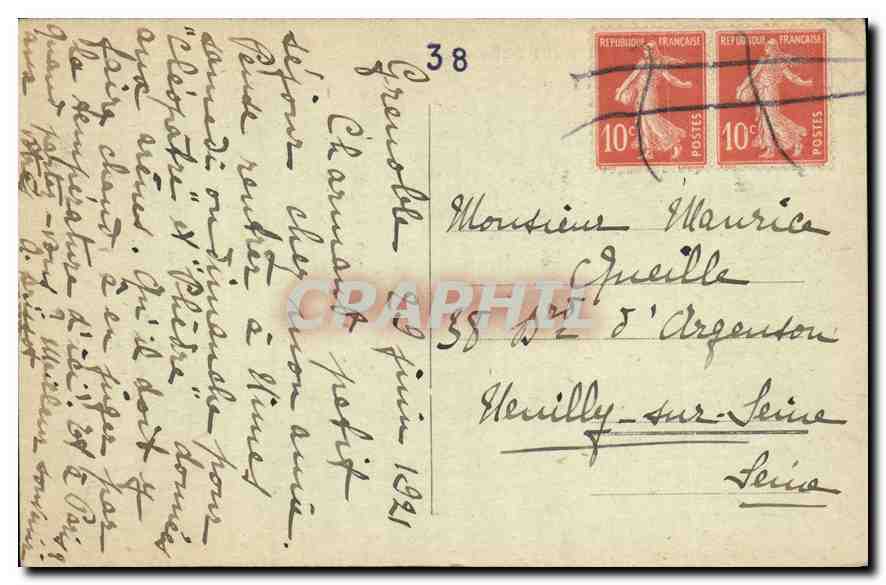 38
REPUBLIQUE FRANÇAISE
10c
POSTES
REPUBLIQUE FRANÇAISE
10c
POSTES
Grenoble 29 juin 1921
Charmant petit
séjour chez mon amie.
Pense rentrer à Nîmes
samedi ou dimanche pour
"Cléopâtre" et "Phèdre" données
aux arènes. Qu'il doit y
faire chaud à en juger par
la température d'ici! Et à Paris?
Quand partez-vous? Meilleur souvenir
Monsieur Maurice
Queille
38 Bd d'Argenson
Neuilly-sur-Seine
Seine
CPAPHIL